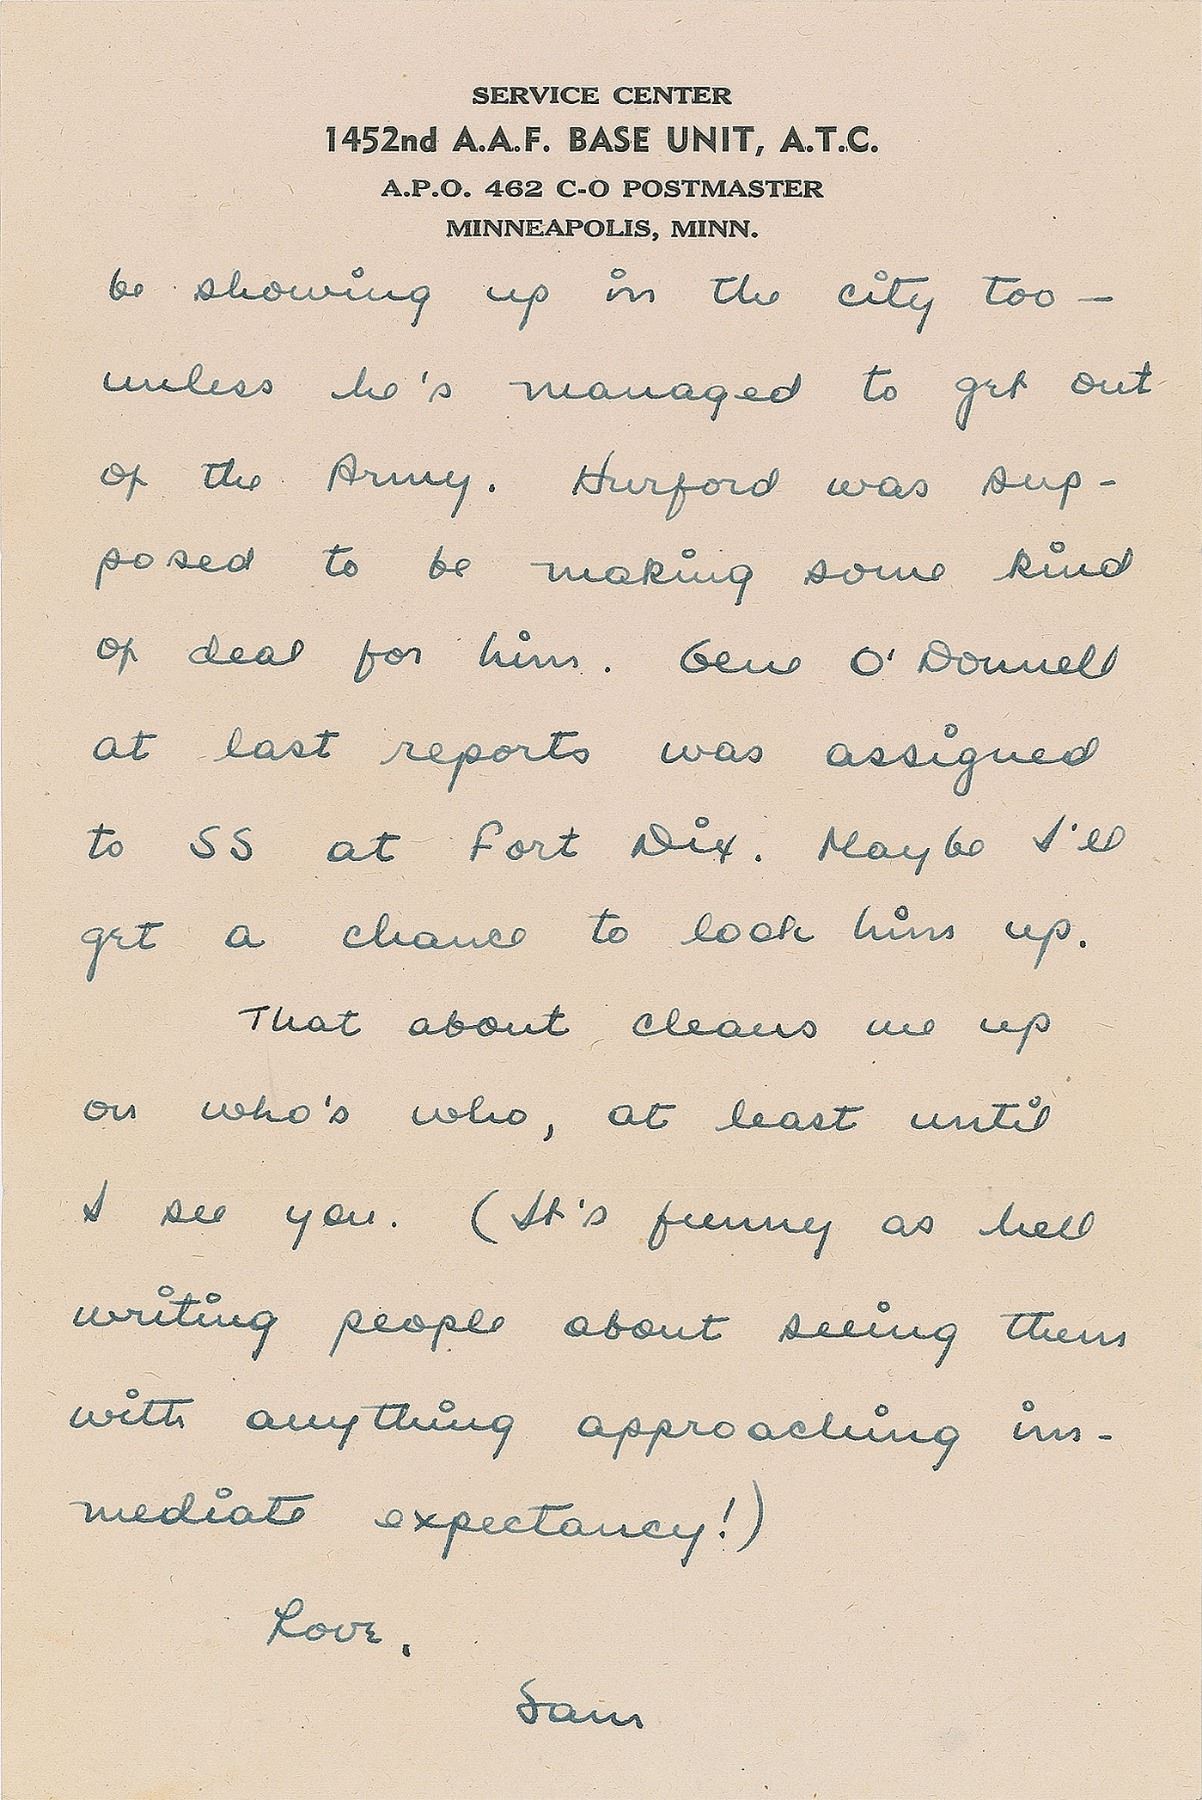 SERVICE CENTER
1452nd A.A.F. BASE UNIT, A.T.C.
A.P.O. 462 C-O POSTMASTER
MINNEAPOLIS, MINN.
be showing up in the city too –
unless he's managed to get out
of the Army. Hurford was sup-
posed to be making some kind
of deal for him. Gene O'Donnell
at last reports was assigned
to SS at Fort Dix. Maybe I'll
get a chance to look him up.
That about cleans me up
on who's who, at least until
I see you. (It's funny as hell
writing people about seeing them
with anything approaching im-
mediate expectancy!)
Love,
Sam